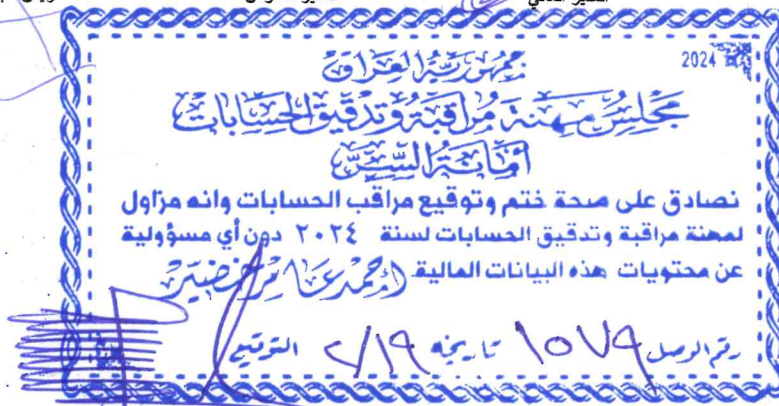 2024
جمهورية العراق
مجلس مهنة مراقبة وتدقيق الحسابات
أمانة السر
نصادق على صحة ختم وتوقيع مراقب الحسابات وانه مزاول
لمهنة مراقبة وتدقيق الحسابات لسنة ٢٠٢٤ دون أي مسؤولية
عن محتويات هذه البيانات المالية احمد عامر خضير
رقم الوصل ١٥٧٩ تاريخه ٢/١٩ التوقيع